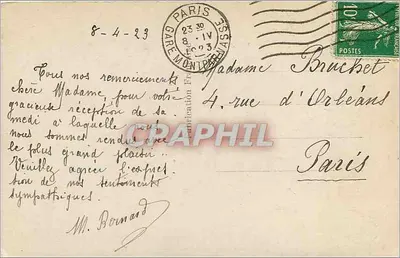 8-4-23
PARIS
23 30
8 · IV
1923
GARE MONTPARNASSE
10
POSTES
Tous nos remerciements
chère Madame, pour votre
gracieuse réception de sa-
medi à laquelle nous
nous sommes rendus avec
le plus grand plaisir.
Veuillez agréer l'expres-
sion de nos sentiments
sympathiques.
M. Bernard
Madame Bruchet
4, rue d'Orléans
Paris
CPAPHIL